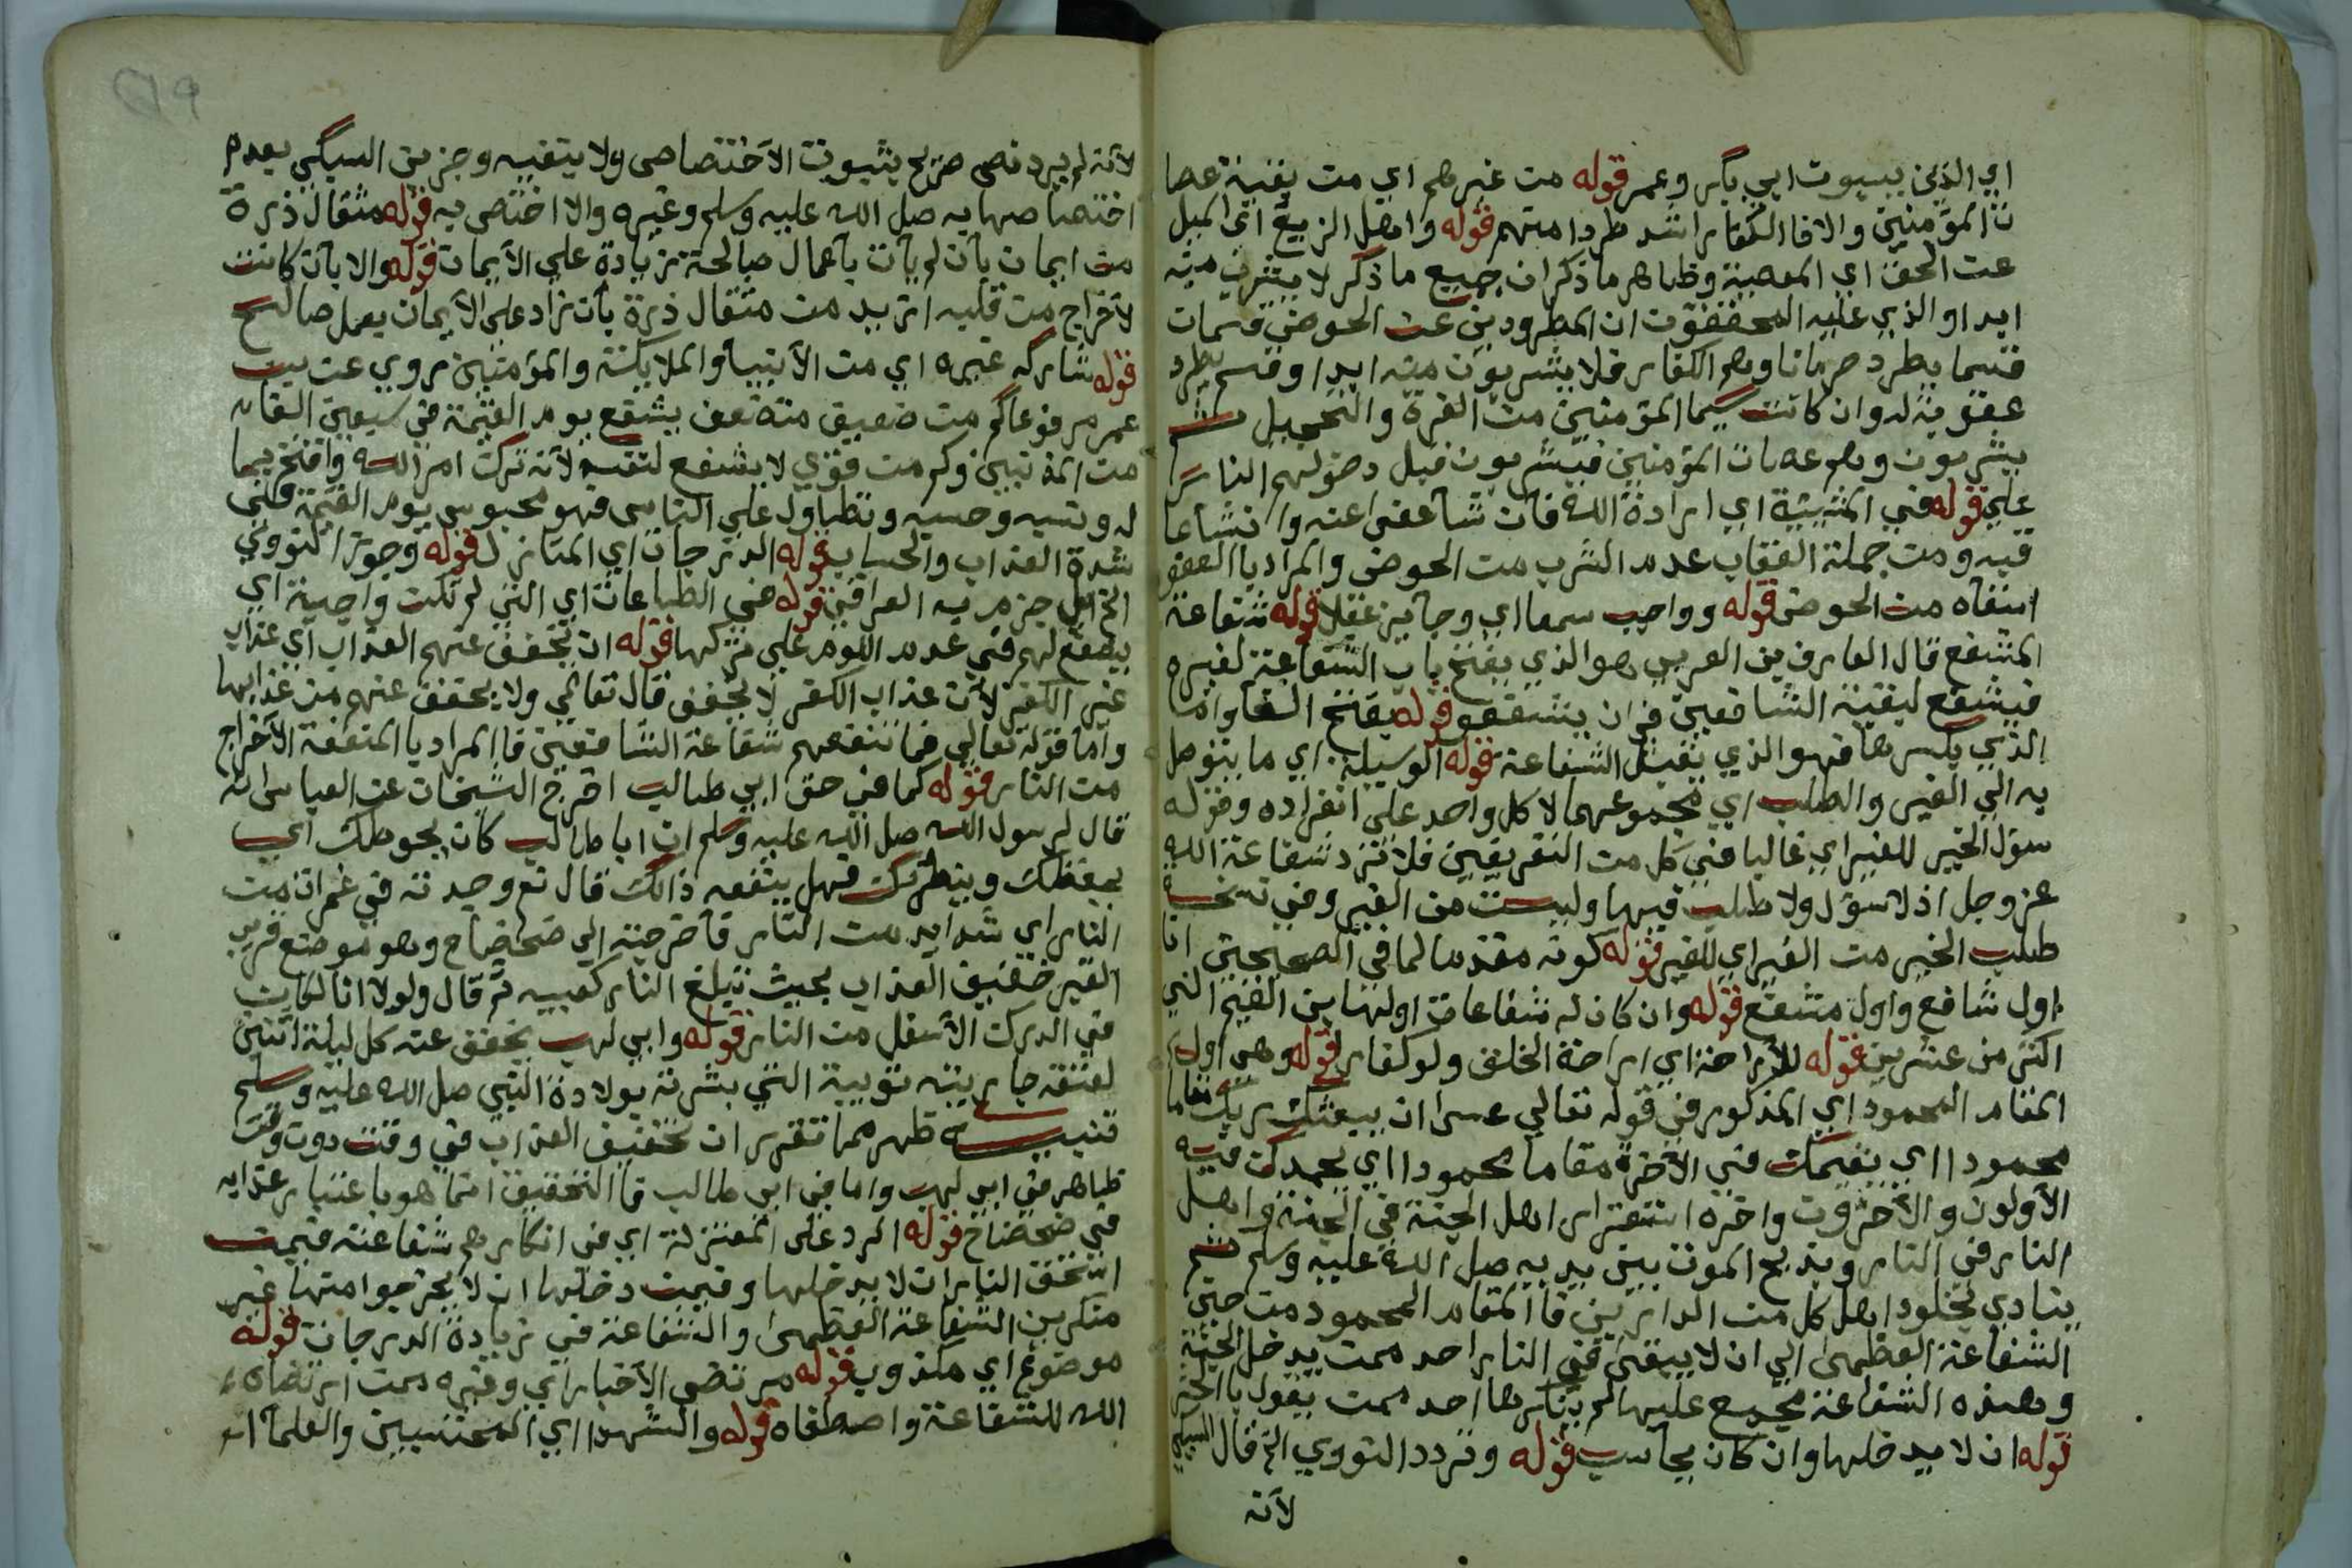 اي الذين يبسبوت ابي بكر وعمر قوله من غيرهم اي من بقية عصا
ت المؤمنين والا فالكفار اشد طردا منهم قوله واهل الزيغ اي الميل
عن الحق اي المعصية وظاهر ما ذكر ان جميع ما ذكر لا يشرب منه
ابدا والذي عليه المحققون ان المطرودين عن الحوض قسمان
قسما يطرد حرمانا وهم الكفار فلا يشربون منه ابدا وقسم يطرد
عقوبة له وان كانت سيما المؤمنين من الغرة والتحجيل ثم
يشربون وهم عصات المؤمنين فيشربون قبل دخولهم النار
علي قوله في المشيئة اي ارادة الله فان شا عفي عنه وان شا عا
قبه ومن جملة العقاب عدم الشرب من الحوض والمراد بالعفو
اسقاه من الحوض قوله وواجب سمعا اي وجايز عقلا قوله شفاعة
المشفع قال العارف بن العربي هو الذي يفتح باب الشفاعة لغيره
فيشفع لبقية الشافعين في ان يشفعو قوله بفتح الفا واما
الذي بكسرها فهو الذي يقبل الشفاعة قوله الوسيلة اي ما يتوصل
به الي الغير والطلب اي مجموعهما لا كل واحد علي انفراده وقوله
سؤل الخير للغير اي غالبا في كل من التعريفين فلا ترد شفاعة الله
عز وجل اذ لا سؤل ولا طلب فيها وليست من الغير وفي نسخة
طلب الخير من الغير اي للغير قوله كونه مقدما لما في الصحيحين انا
اول شافع واول مشفع قوله وان كان له شفاعات اولها بن القيم الي
اكثر من عشرين قوله للاراحة اي اراحة الخلق ولو كفار قوله وهي اول
المقام المحمود اي المذكور في قوله تعالي عسى ان يبعثك ربك مقاما
محمودا اي يقيمك في الآخرة مقاما محمودا اي يحمدك فيه
الأولون والآخرون واخره استقرار اهل الجنة في الجنة واهل
النار في النار ويذبح الموت بين يديه صل الله عليه وسلم ثم
ينادي بخلود اهل كل من الدارين فالمقام المحمود من حين
الشفاعة العظمى الي ان لا يبقى في النار احد ممن يدخل الجنة
وهذه الشفاعة مجمع عليها لم ينكرها احد ممن يقول بالحشر
قوله ان لا يدخلها وان كان بحاسب قوله وتردد النووي الخ قال السبكي
لأنه
لأنه لم يرد نص صريح بثبوت الأختصاص ولا بنفيه وجزم بن السبكي بعدم
اختصاصها به صل الله عليه وسلم وغيره والا اختص به قوله مثقال ذرة
من ايمان بأن لم يأت بأعمال صالحة زيادة علي الأيمان قوله والا بأن كانت
لأخراج من قلبه ازيد من مثقال ذرة بأن زاد على الأيمان بعمل صالح
قوله شاركه غيره اي من الأنبيا والملايكة والمؤمنين روي عن بن
عمر مرفوعا كم من ضعيف متضعف يشفع يوم القيمة في سبعين الفا
من المذنبين وكم من قوي لا يشفع لنفسه لأنه ترك امر الله وافتخر بما
له ونسبه وحسبه وتطاول علي الناس فهو محبوس يوم القيمة في
شدة العذاب والحساب قوله الدرجات اي المنازل قوله وجوز النووي
الخ اهل جزم به العراقي قوله في الطاعات اي التي لم تكن واجبة اي
يشفع لهم في عدم اللوم علي تركها قوله ان يخفف عنهم العذاب اي عذاب
غير الكفر لأن عذاب الكفر لا يخفف قال تعالي ولا يخفف عنهم من عذابها
واما قوله تعالي فما تنفعهم شفاعة الشافعين فالمراد بالمنفعة الأخراج
من النار قوله كما في حق ابي طالب اخرج الشيخان عن العباس انه
قال لرسول الله صل الله عليه وسلم ان ابا طالب كان يحوطك اي
يحفظك وينصرك فهل ينفعه ذالك قال نعم وجدته في غمرات من
النار اي شدايد من النار فأخرجته الي ضحضاح وهو موضع قريب
القير خفيف العذاب بحيث تبلغ النار كعبيه ثم قال ولولا انا لكان
في الدرك الأسفل من النار قوله وابي لهب يخفف عنه كل ليلة اثنين
لعتقه جاريته ثويبة التي بشرته بولادة النبي صل الله عليه وسلم
تنبيه ظهر مما تقرر ان تخفيف العذاب في وقت دون وقت
ظاهر في ابي لهب واما في ابي طالب فالتخفيف انما هو باعتبار عذابه
في ضحضاح قوله الرد على المعتزلة اي في انكارهم شفاعته فيمن
استحق النار ان لا يدخلها وفيمن دخلها ان لا يخرجوا منها غير
منكرين الشفاعة العظمى والشفاعة في زيادة الدرجات قوله
موضوع اي مكذوب قوله مرتضى الأخيار اي وغيره ممن ارتضاه
الله للشفاعة واصطفاه قوله والشهدا اي المحتسبين والعلما